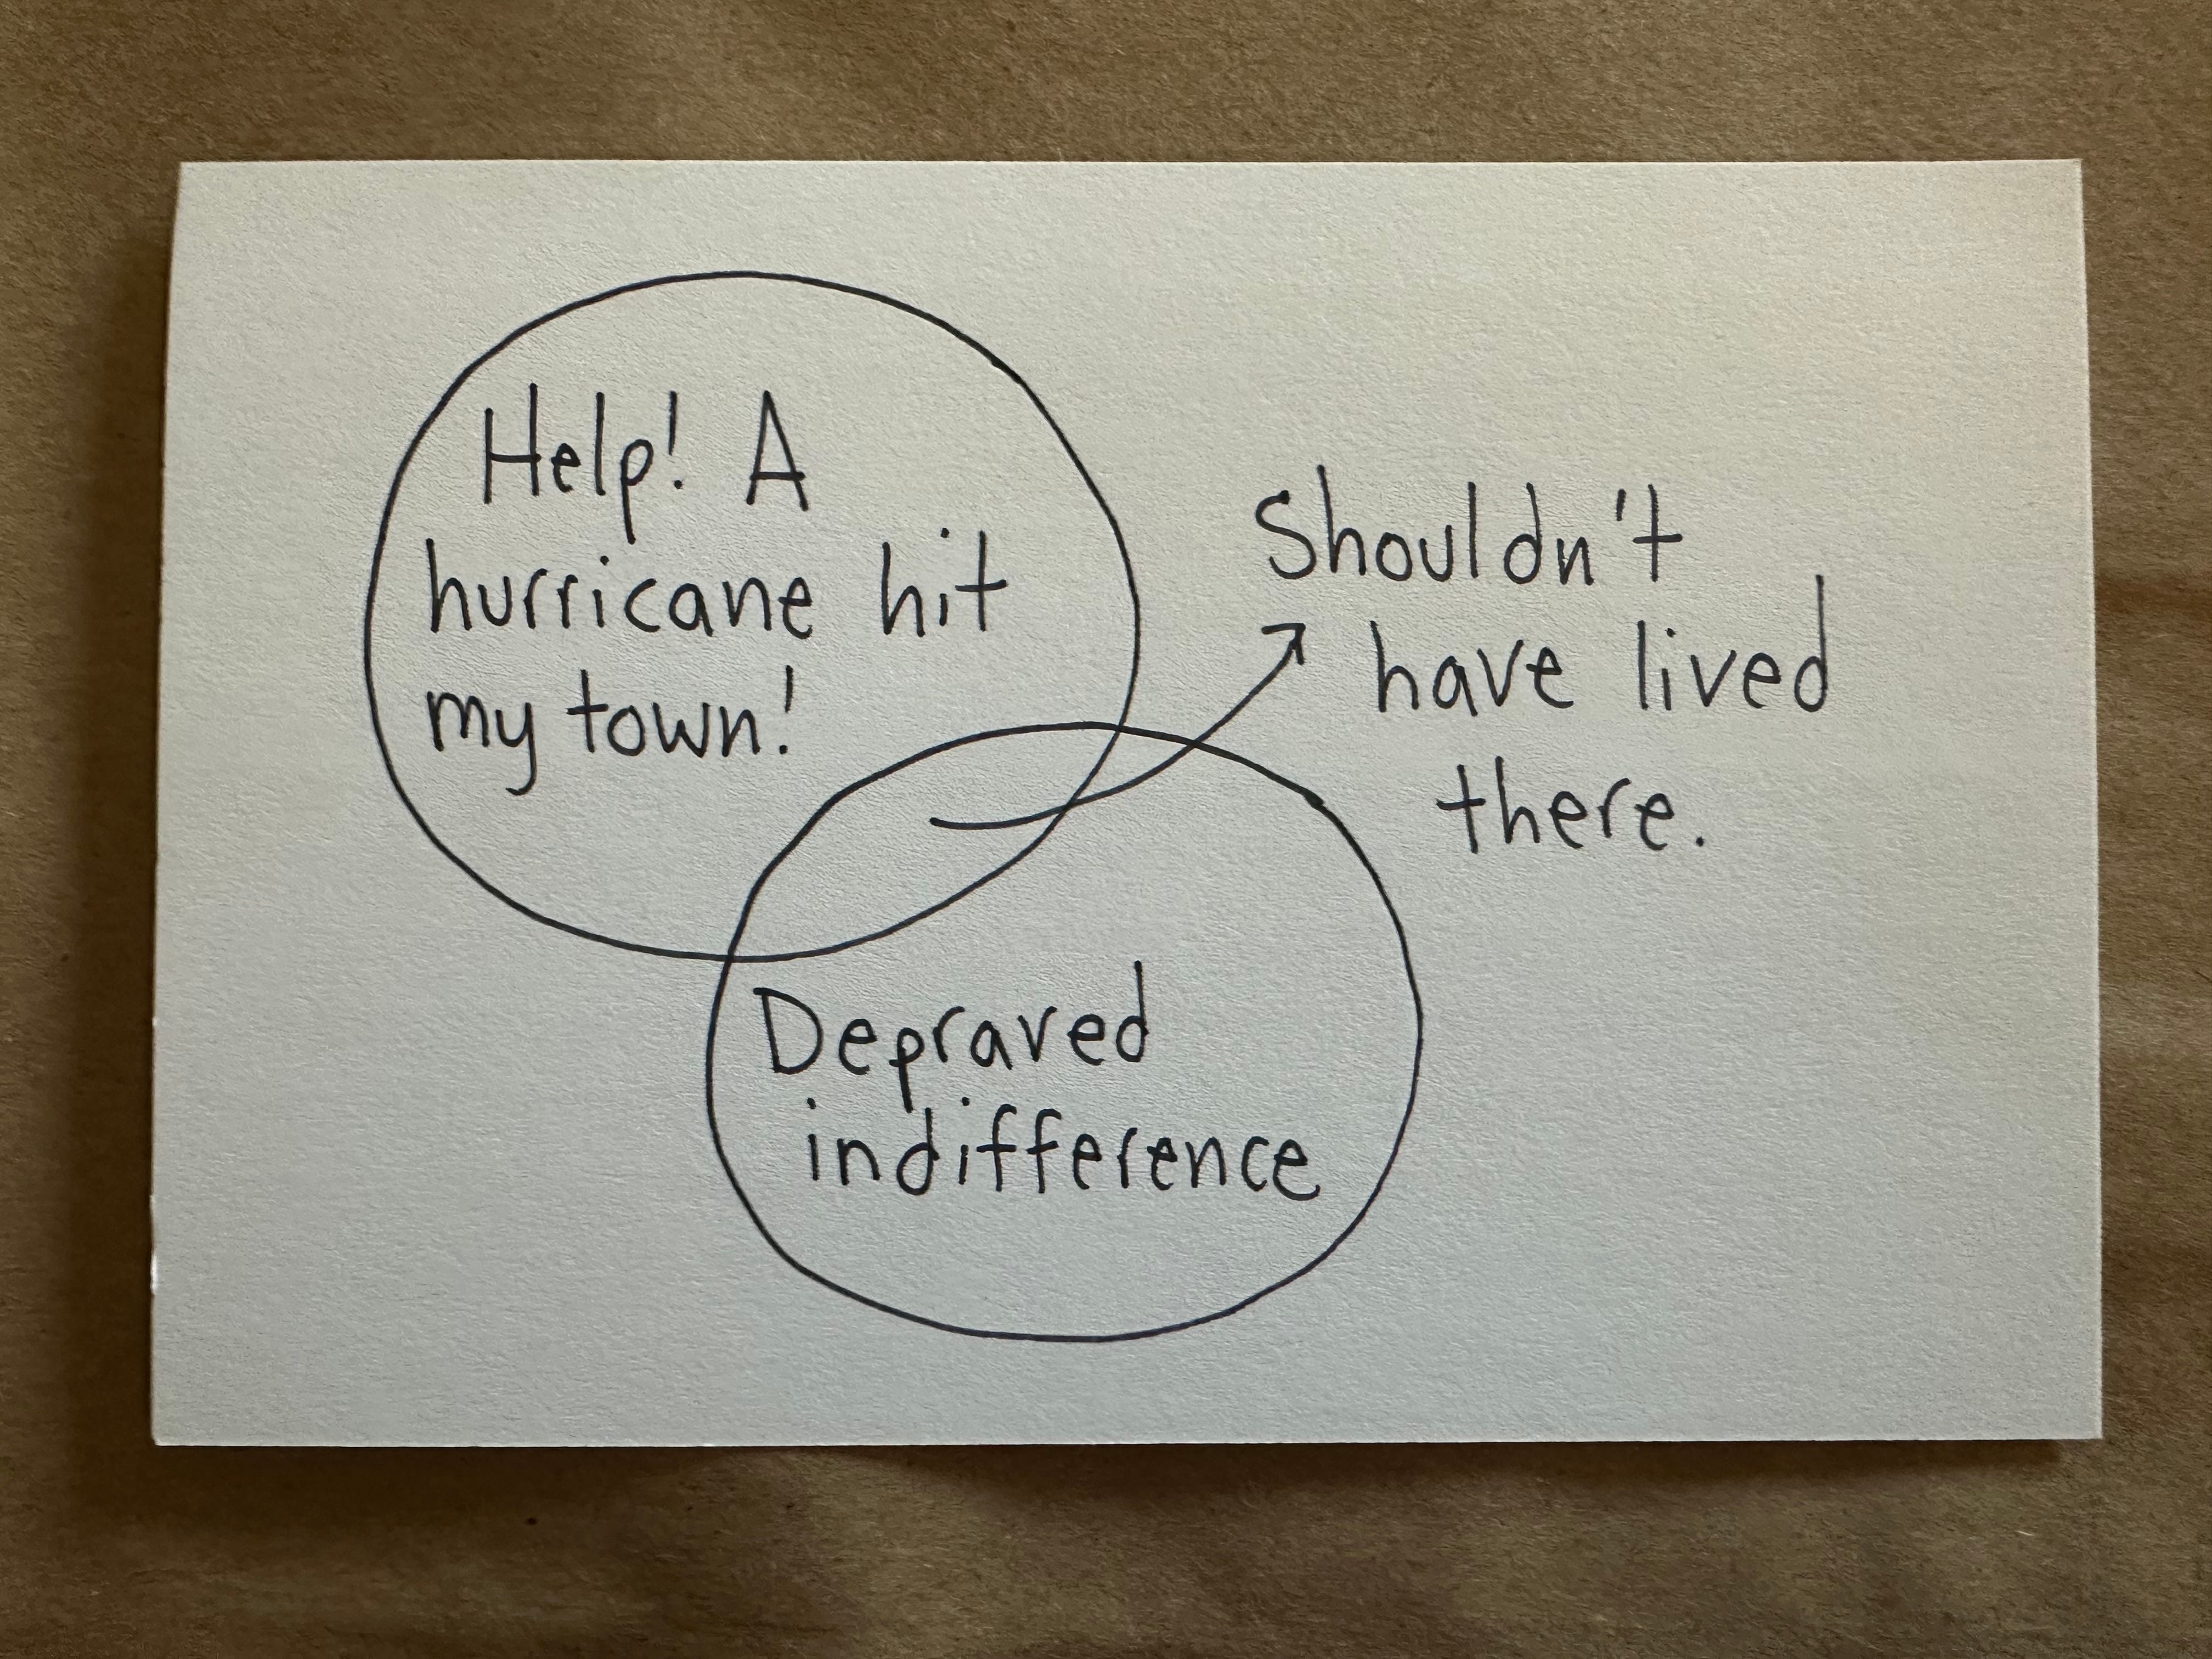 Help! A
hurricane hit
my town!
Shouldn't
have lived
there.
Depraved
indifference